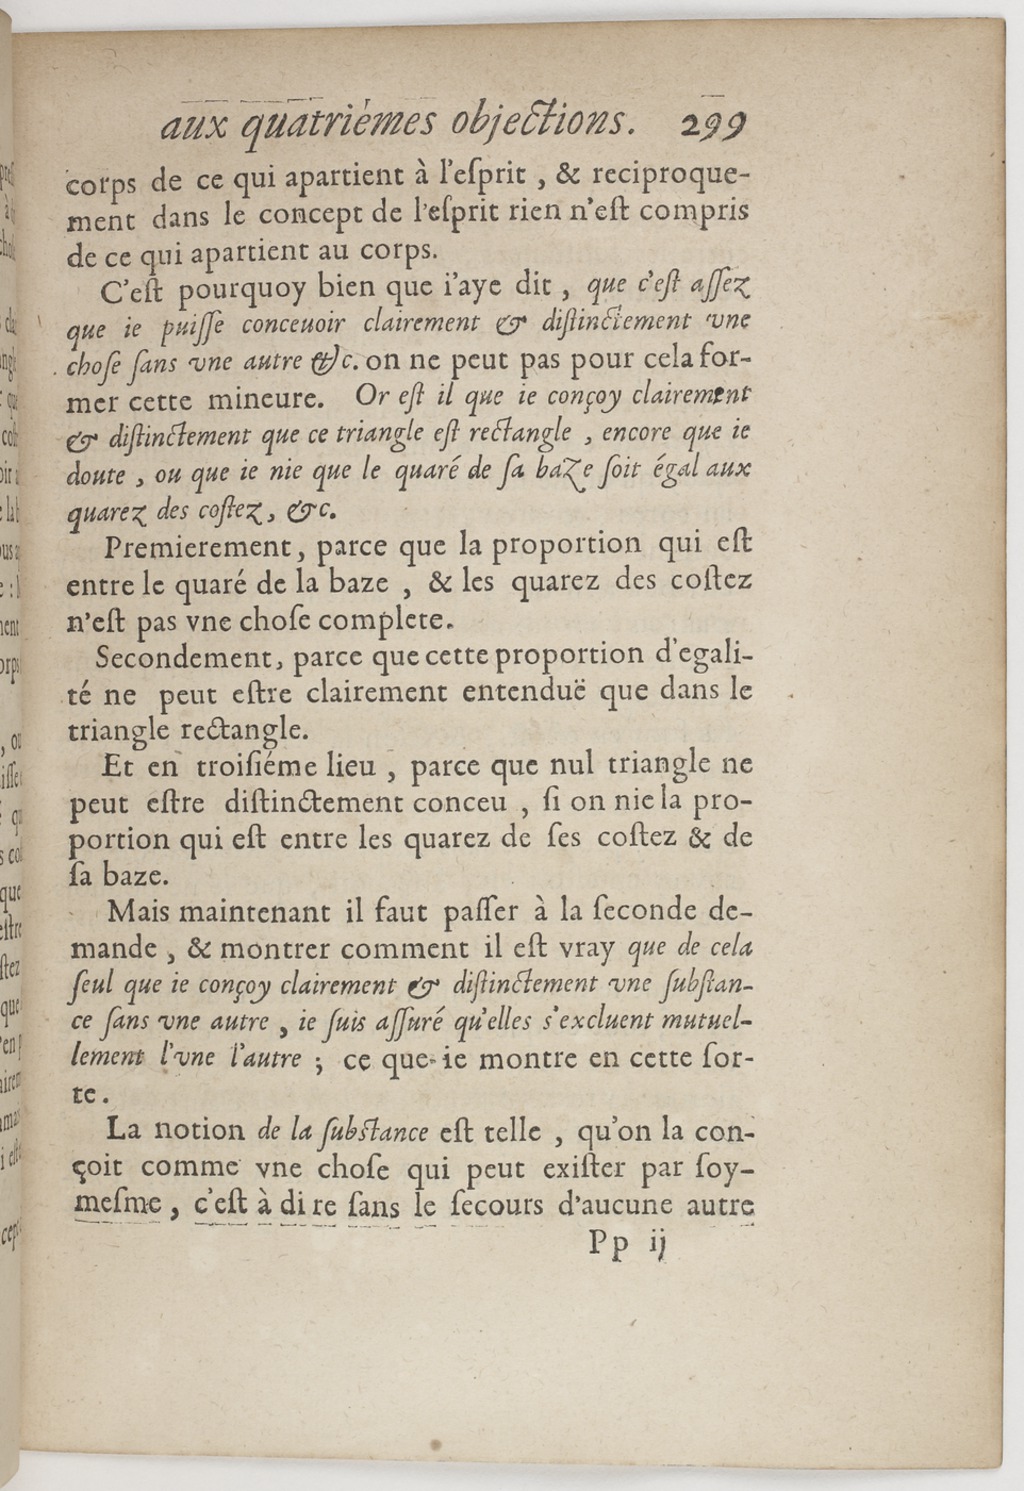 aux quatriémes objections. 299
corps de ce qui apartient à l'eſprit, & reciproque-
ment dans le concept de l'eſprit rien n'eſt compris
de ce qui apartient au corps.
C'eſt pourquoy bien que i'aye dit, que c'eſt aſſez
que ie puiſſe conceuoir clairement & diſtinctement vne
choſe ſans vne autre &c. on ne peut pas pour cela for-
mer cette mineure. Or eſt il que ie conçoy clairement
& diſtinctement que ce triangle eſt rectangle, encore que ie
doute, ou que ie nie que le quaré de ſa baze ſoit égal aux
quarez des coſtez, &c.
Premierement, parce que la proportion qui eſt
entre le quaré de la baze, & les quarez des coſtez
n'eſt pas vne choſe complete.
Secondement, parce que cette proportion d'egali-
té ne peut eſtre clairement entenduë que dans le
triangle rectangle.
Et en troiſiéme lieu, parce que nul triangle ne
peut eſtre diſtinctement conceu, ſi on nie la pro-
portion qui eſt entre les quarez de ſes coſtez & de
ſa baze.
Mais maintenant il faut paſſer à la ſeconde de-
mande, & montrer comment il eſt vray que de cela
ſeul que ie conçoy clairement & diſtinctement vne ſubſtan-
ce ſans vne autre, ie ſuis aſſuré qu'elles s'excluent mutuel-
lement l'vne l'autre; ce que ie montre en cette ſor-
te.
La notion de la ſubſtance eſt telle, qu'on la con-
çoit comme vne choſe qui peut exiſter par ſoy-
meſme, c'eſt à dire ſans le ſecours d'aucune autre
Pp ij